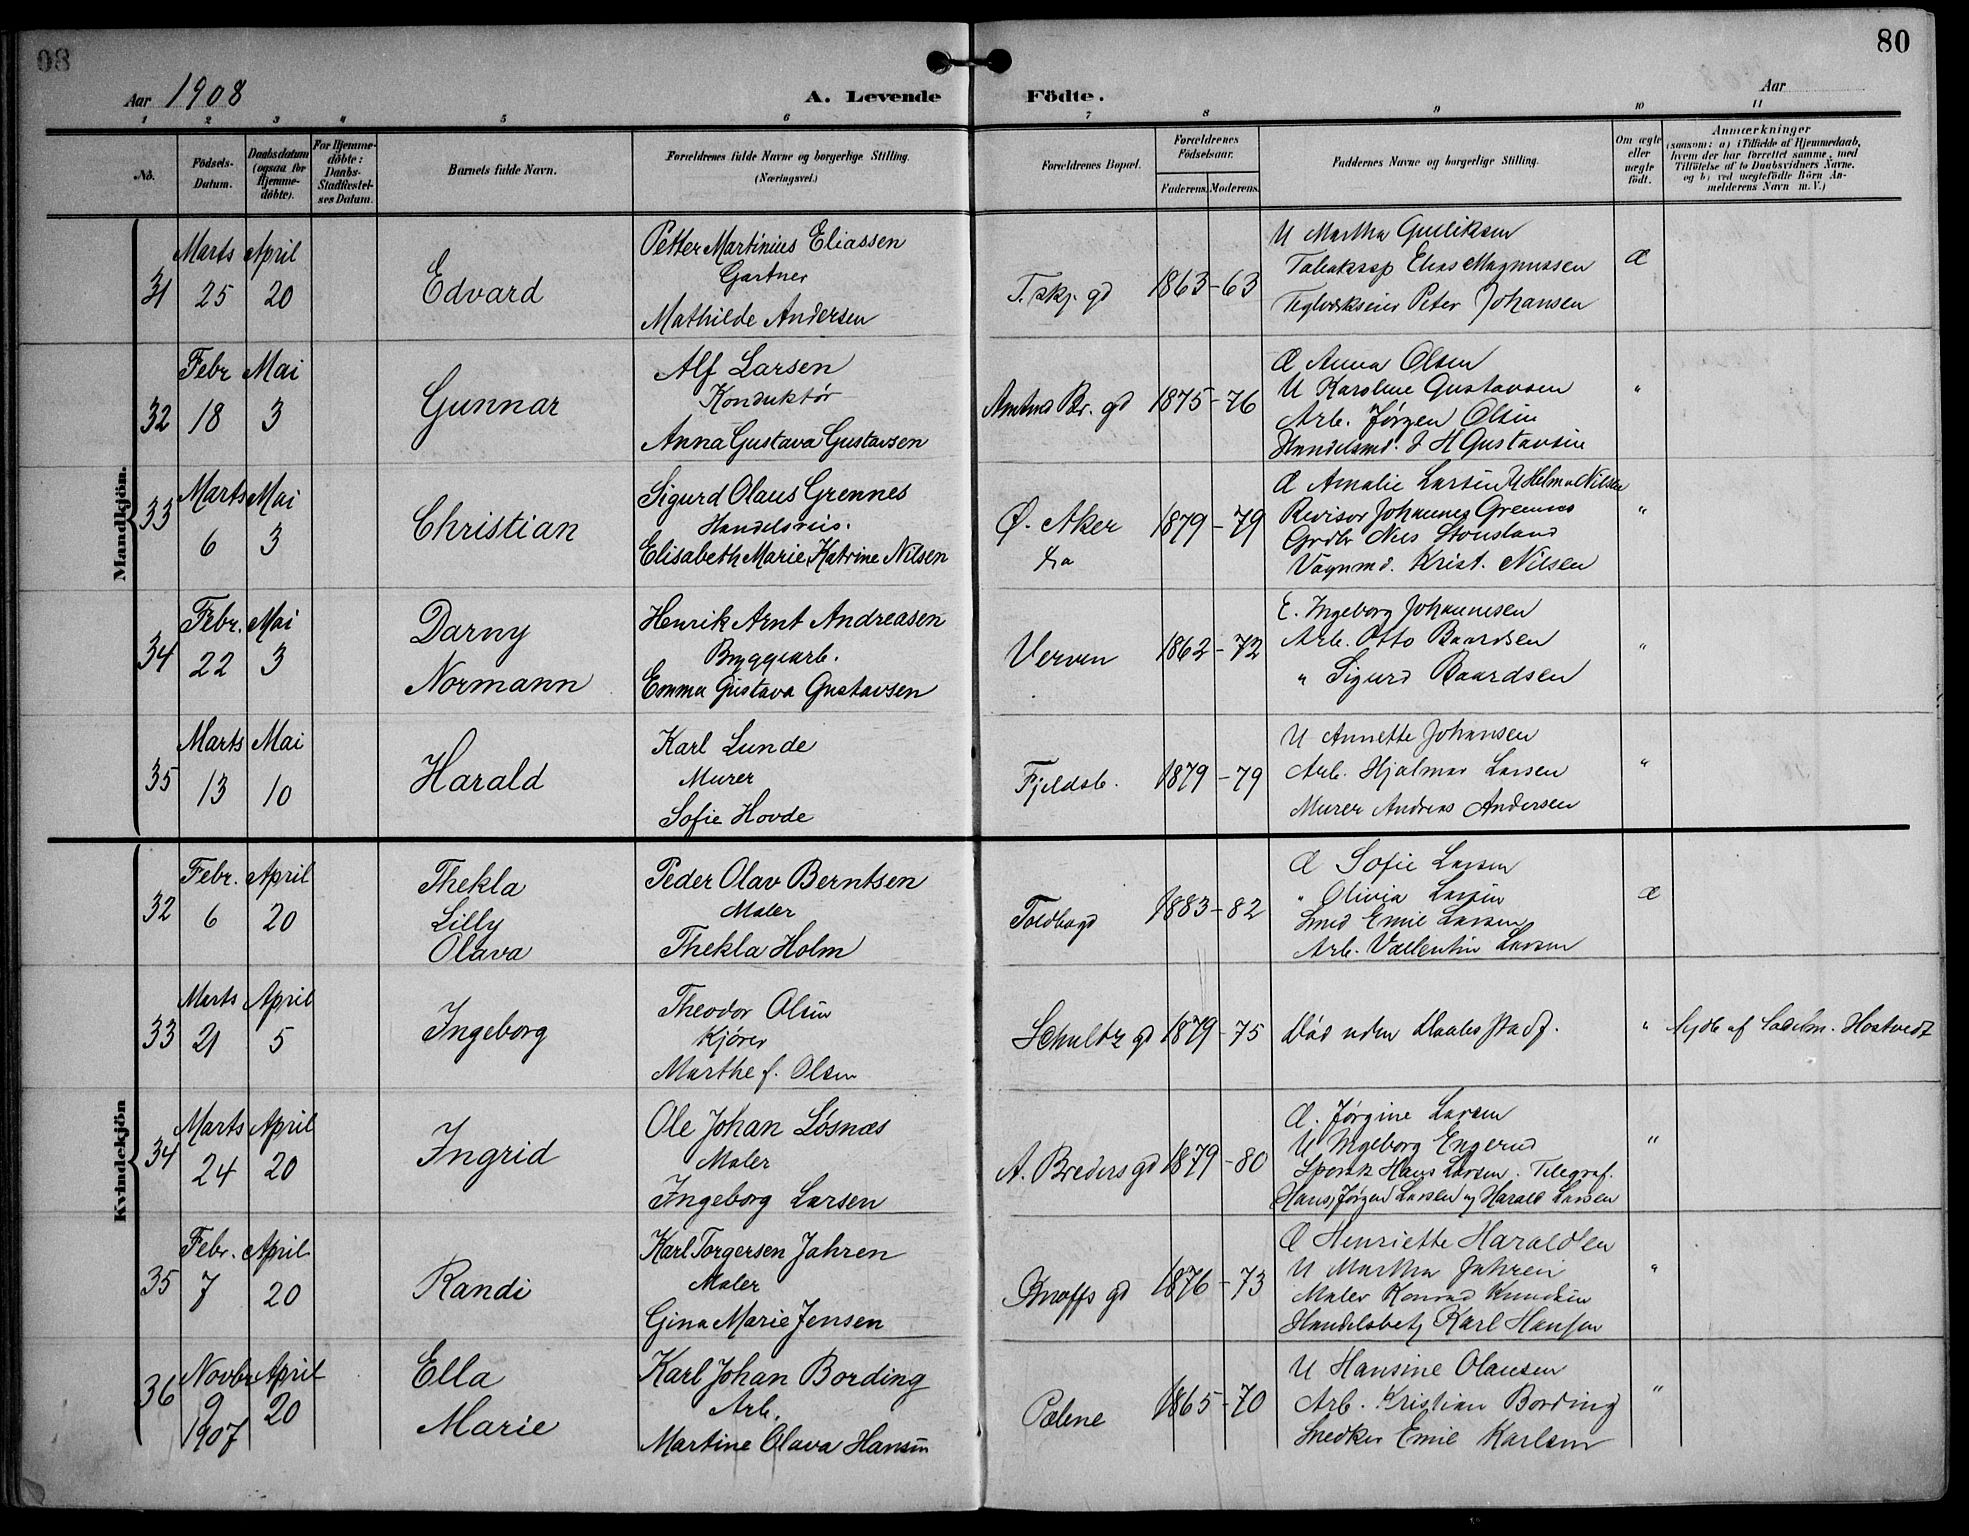 80
Aar 1908
A. Levende Födte.
Aar
1 2 3 4 5 6 7 8 9 10 11
No.
Födsels-Datum.
Daabsdatum (ogsaa for Hjemmedöbte).
For Hjemmedöbte: Daabs-Stadfæstelses Datum.
Barnets fulde Navn.
Forældrenes fulde Navne og borgerlige Stilling. (Næringsvei.)
Forældrenes Bopæl.
Forældrenes Födselsaar.
Faderens. Moderens.
Faddernes Navne og borgerlige Stilling.
Om ægte eller uægte födt.
Anmærkninger
(saasom: a) i Tilfælde af Hjemmedaab, hvem der har forrettet samme, med Tilföielse af to Daabsvidners Navne. og b) ved uægtefödte Börn Anmelderens Navn m. V.)
Mandkjön.
31 Marts 25 April 20 Edvard
Petter Martinius Eliassen
Gartner
Mathilde Andersen
T.skj. gd 1863-63
U Martha Guliksen
Elias Magnussen
Peter Johansen
Æ
32 Febr 18 Mai 3 Gunnar
Alf Larsen
Konduktør
Anna Gustava Gustavsen
Amtm Br. gd 1875-76
Æ Anna Olsen
U Karoline Gustavsen
Arb. Jørgen Olsen
Handelsmd. J H Gustavsen
"
33 Marts 6 Mai 3 Christian
Sigurd Olaus Grennes
Handelsreis.
Elisabeth Marie Katrine Nilsen
Ø. Aker 1879-79
Æ Amalie Larsen U Helma Nilsen
Revisor Johannes Grennes
Nils
Vognmd. Krist. Nilsen
"
34 Febr. 22 Mai 3 Darny Normann
Henrik Arnt Andreasen
Bryggearb.
Emma Gustava Gustavsen
Verven 1862-72
E. Ingeborg Johannesen
Arb. Otto Baardsen
" Sigurd Baardsen
"
35 Marts 13 Mai 10 Harald
Karl Lunde
Murer
Sofie Hovde
Fjeldsb. 1879-79
U Annette Johansen
Arb. Hjalmar Larsen
Murer Andreas Andersen
"
Kvindekjön
32 Febr. 6 April 20 Thekla Lilly Olava
Peder Olav Berntsen
Maler
Thekla Holm
Toldbogd 1883-82
Æ Sofie Larsen
" Olivia Larsen
Smed Emil Larsen
Arb. Vallentin Larsen
Æ
33 Marts 21 April 5 Ingeborg
Theodor Olsen
Kjører
Marthe f. Olsen
Schultz gd 1879-75
Død uden Daabs stadf.
" af Hostvedt
34 Marts 24 April 20 Ingrid
Ole Johan Løsnæs
Maler
Ingeborg Larsen
A. Breders gd 1879-80
Æ. Jørgine Larsen
U Ingeborg Engerud
Hans Larsen. Telegraf.
Hans Jørgen Larsen og Harald Larsen
"
35 Febr. 7 April 20 Randi
Karl Torgersen Jahren
Maler
Gina Marie Jensen
gd 1876-73
Æ Henriette Haraldsen
U Martha Jahren
Maler Konrad Knudsen
Handelsbetj Karl Hansen
"
36 Novbr 9 1907 April 20 Ella Marie
Karl Johan Bording
Arb.
Martine Olava Hansen
Pælene 1865-70
U Hansine Olausen
Arb. Kristian Bording
Snedker Emil Karlsen
"